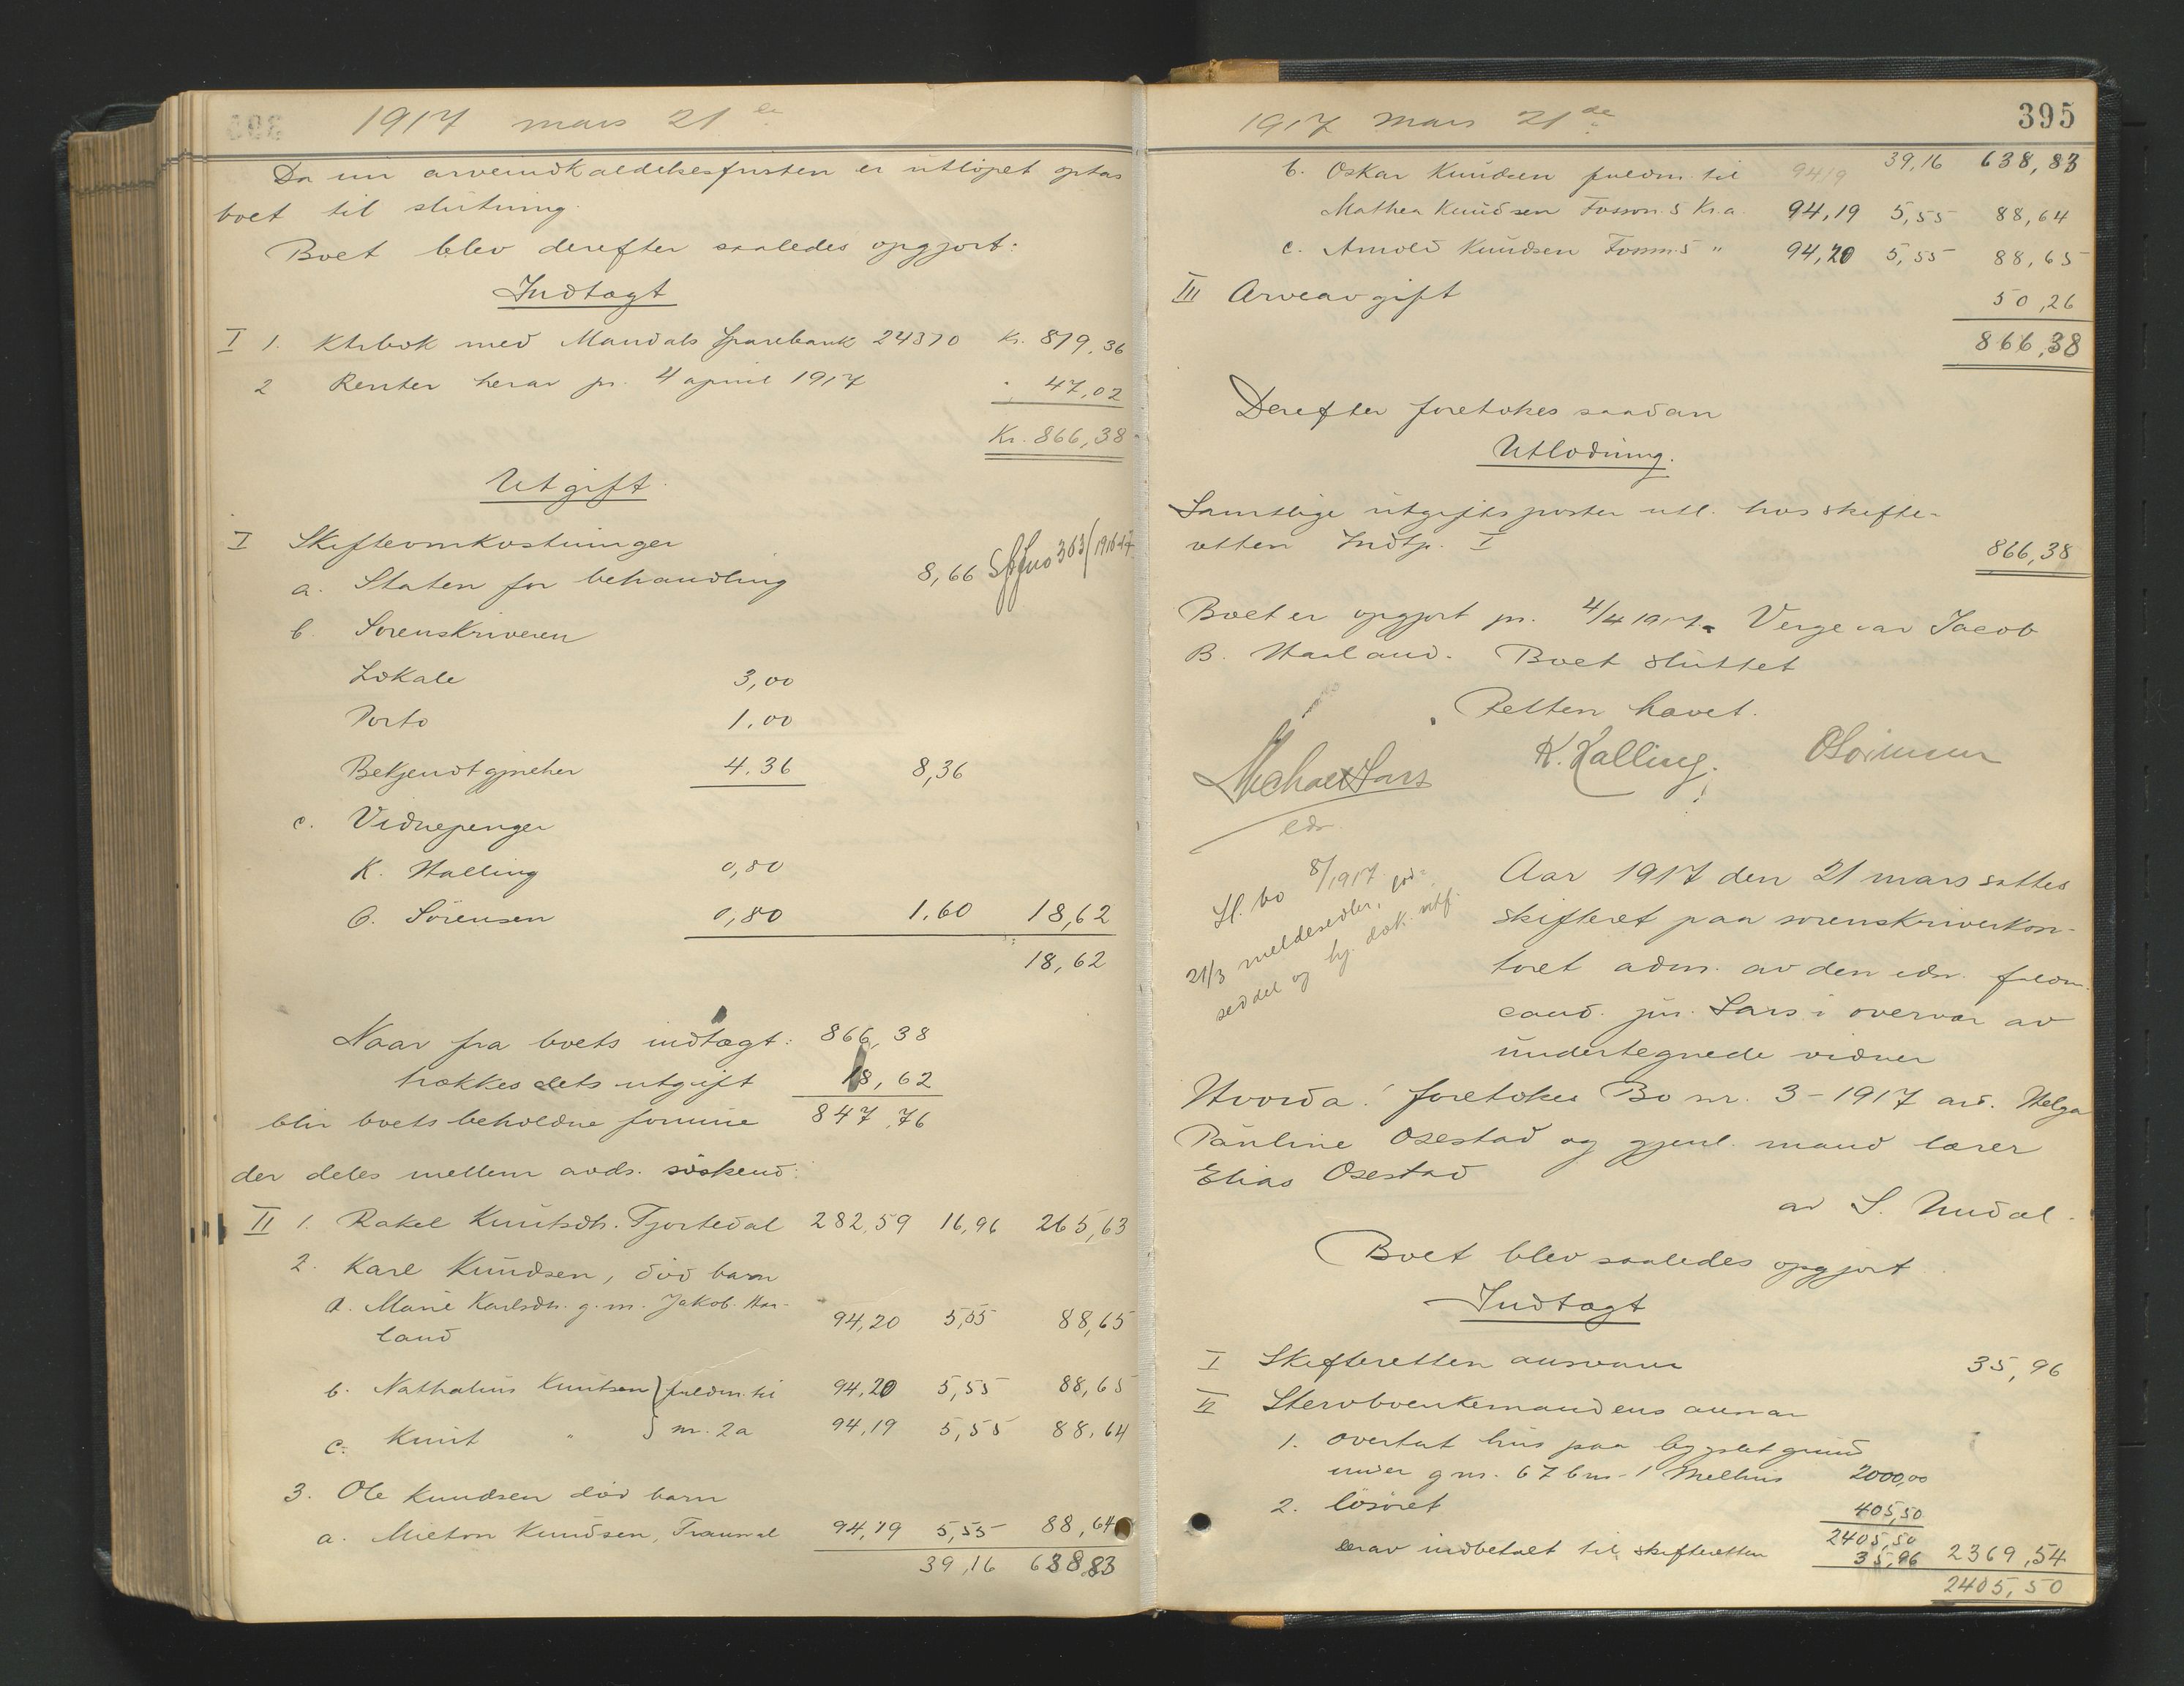 1917 mars 21de
Da nu arveindkaldelsesfristen er utløpet optas
boet til slutning.
Boet blev derefter saaledes opgjort:
Indtægt
I 1. Ktrbok med Mandals Sparebank 24370 Kr. 819,36
2 Renter herav pr. 4 april 1917 " 47,02
Kr. 866,38
Utgift
I Skifteomkostninger
a. Staten for behandling 8,66
b. Sorenskriveren
Lokale 3,00
Porto 1,00
Bekjendtgjørelser 4.36 8,36
c. Vidnepenger
K. Halling 0,80
O. Sørensen 0,80 1,60 18,62
18,62
Naar fra boets indtægt: 866,38
trækkes dets utgift 18,62
blir boets beholdne formue 847,76
der deles mellem avds. søskend:
II 1. Rakel Knutsdtr. Tjortedal 282,59 16,96 265,63
2. Karl Knudsen, død barn
a. Marie Karlsdtr. g. m. Jakob Har-
land 94,20 5,55 88,65
b. Nathalius Knutsen } fuldm. til 94,20 5,55 88,65
c. Knut " } nr. 2a 94,19 5,55 88,64
3. Ole Knudsen død barn
a. Milton Knudsen, 94,19 5,55 88,64
39,16 638,83
1917 mars 21de
395
b. Oskar Knudsen fuldm. til 9419 39,16 638,83
Mathea Knudsen Fossm. 5 Kr.a. 94,19 5,55 88,64
c. Arnold Knudsen Fossm. 5 " 94,20 5,55 88,65
III Arveavgift 50,26
866,38
Derefter foretokes saadan
Utlodning.
Samtlige utgiftsposter utl. hos skifte-
retten Indtp. I 866,38
Boet er opgjort pr. 4/4 1917. Verge var Jacob
B. Harland. Boet sluttet
Retten hævet.
Michael Sars K. Halling. O Sørensen
edv.
Sl. bo 8/1917.
21/3 meldesedler, lod-
seddel og hj. dok. utf.
Aar 1917 den 21 mars sattes
skifteret paa sorenskriverkon-
toret adm. av den edsv. fuldm.
cand. jur. Sars i overvær av
undertegnede vidner
Hvorda: foretokes Bo nr. 3-1917 avd. Helga
Pauline Osestad og gjenl. mand lærer
Elias Osestad
av S. Undal.
Boet blev saaledes opgjort
Indtægt
I Skifteretten ansvarer 35,96
II Stervboenkemandens ansvar
1. overtat hus paa bygslet grund
under gnr. 67 bnr. 1 Melhus 2000,00
2. løsøret 405,50
2405,50
herav indbetalt til skifteretten 35,96 2369,54
2405,50